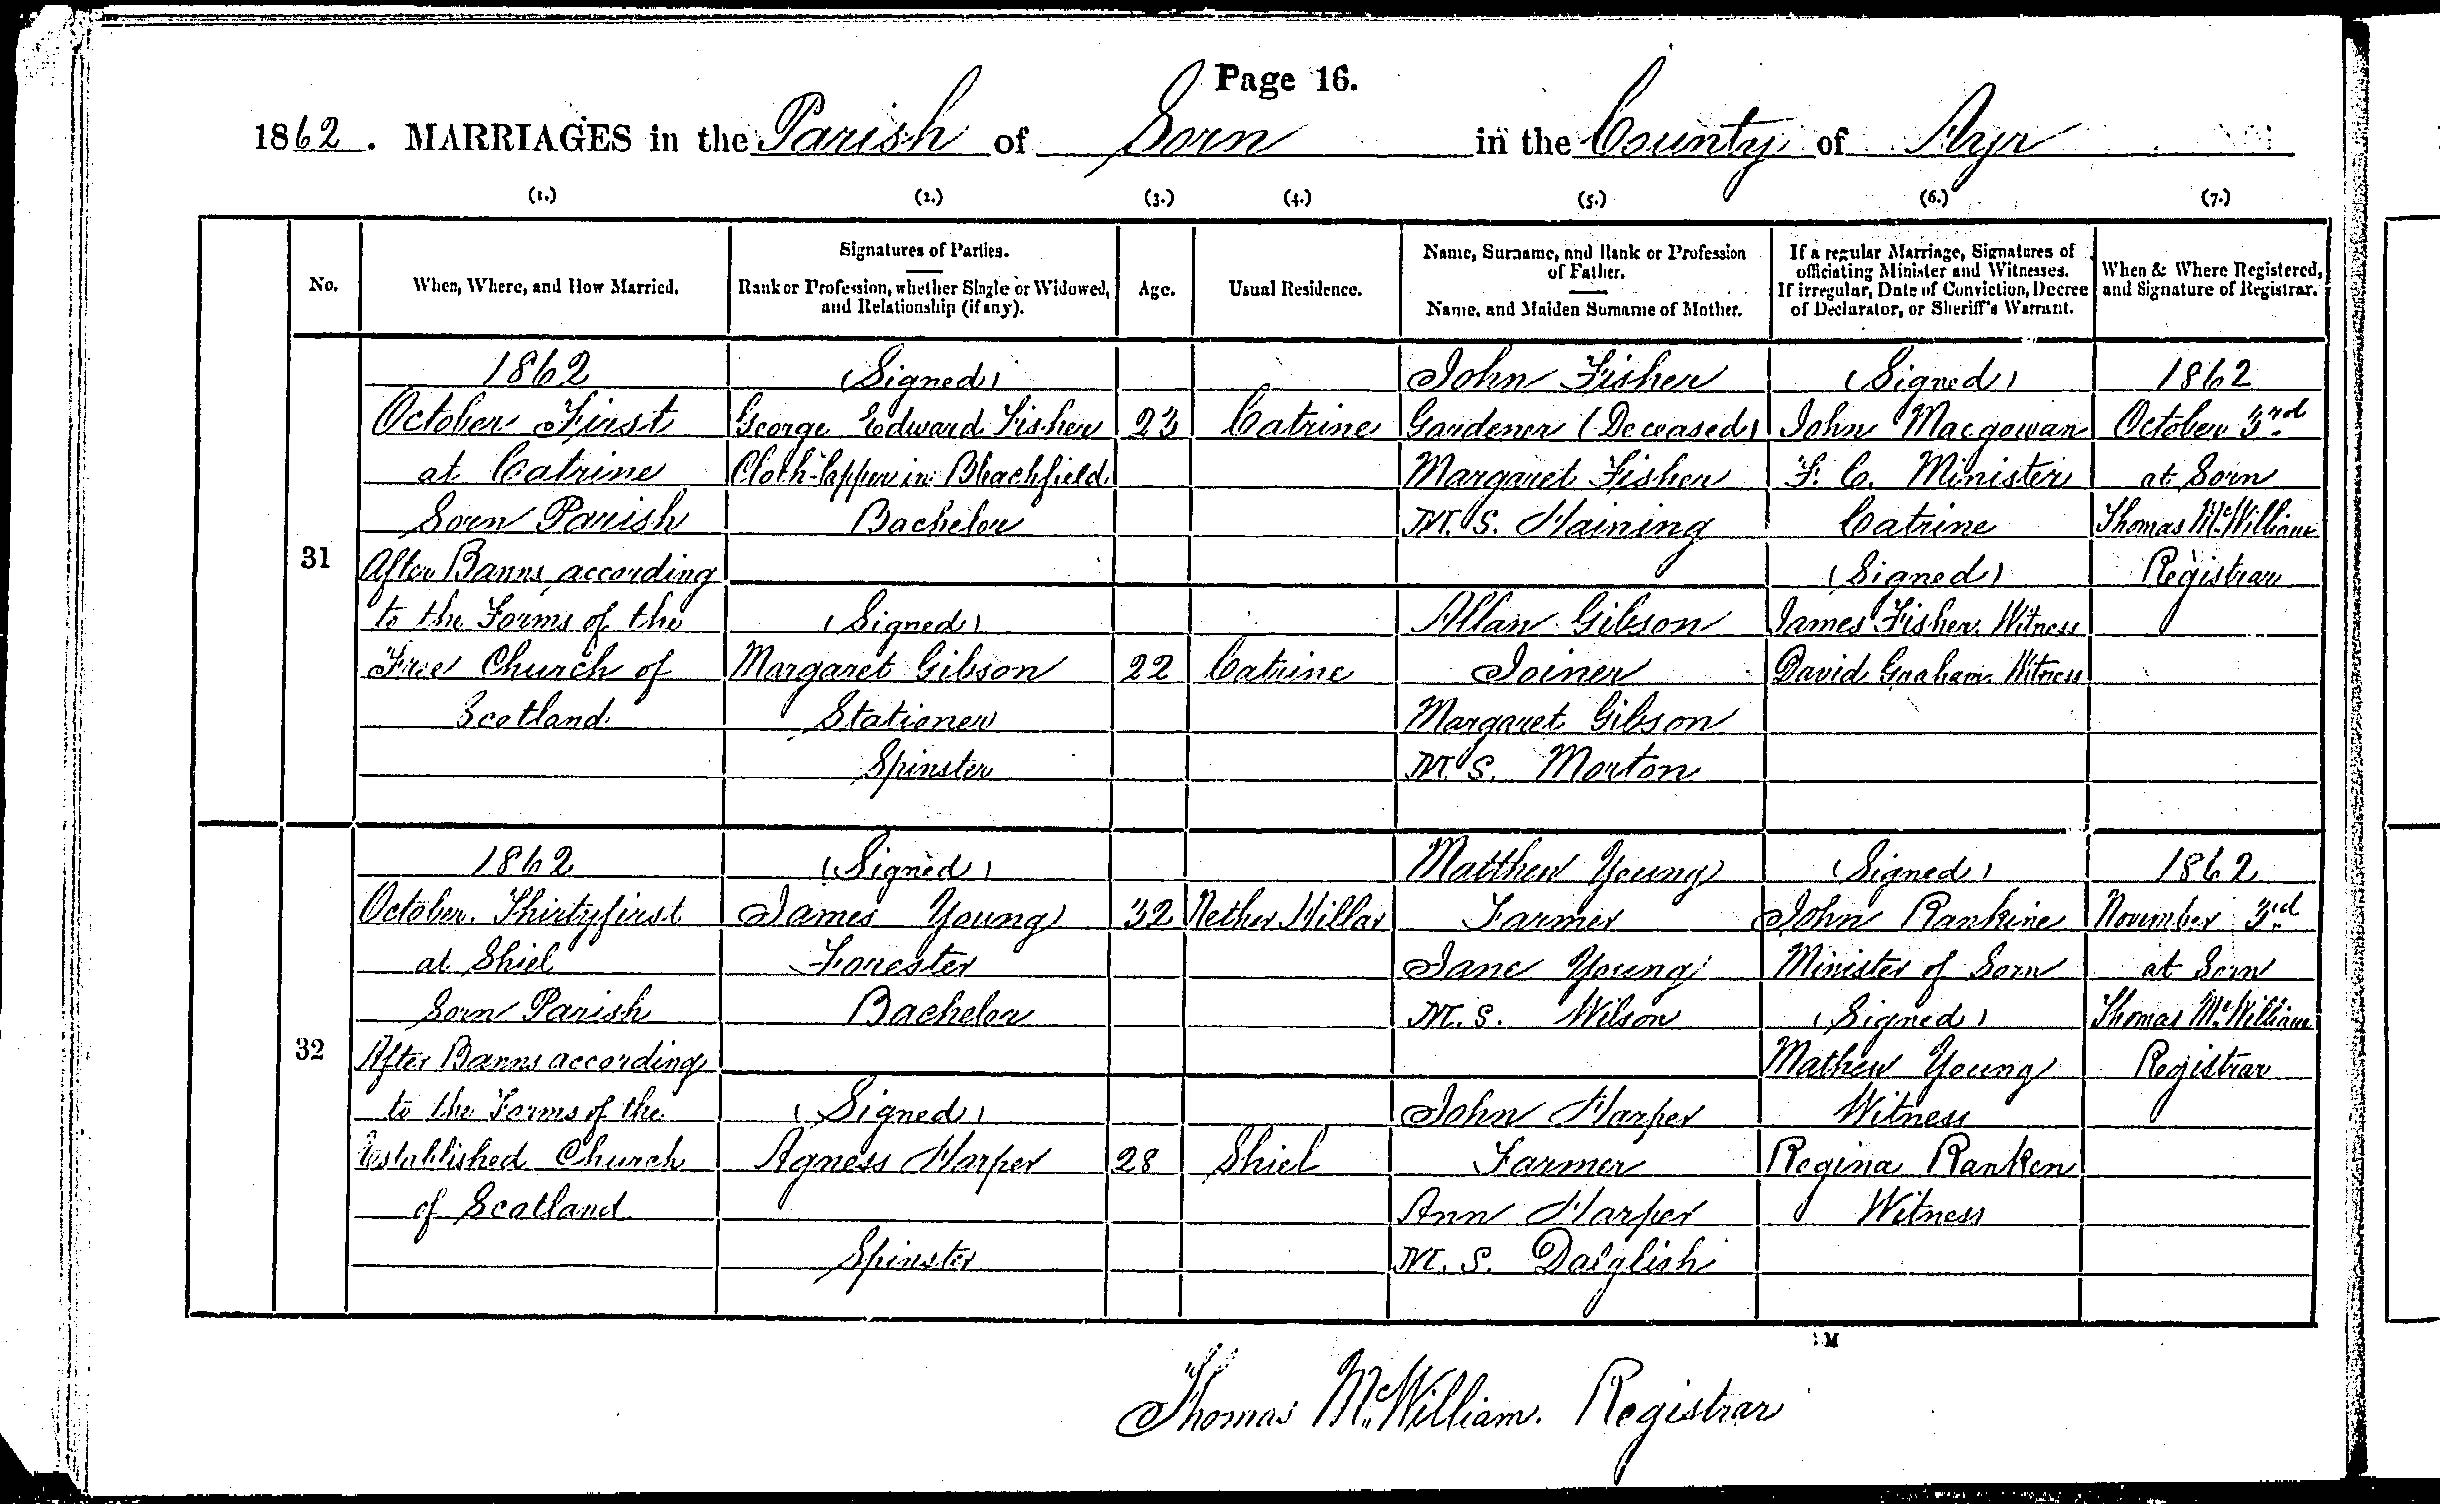 Page 16.
1862. MARRIAGES in the Parish of Sorn in the County of Ayr
(1.) (2.) (3.) (4.) (5.) (6.) (7.)
No.
When, Where, and How Married.
Signatures of Parties.
Rank or Profession, whether Single or Widowed,
and Relationship (if any).
Age.
Usual Residence.
Name, Surname, and Rank or Profession
of Father.
Name, and Maiden Surname of Mother.
If a regular Marriage, Signatures of
officiating Minister and Witnesses.
If irregular, Date of Conviction, Decree
of Declarator, or Sheriff's Warrant.
When & Where Registered,
and Signature of Registrar.
31
1862
October First
at Catrine
Sorn Parish
After Banns according
to the Forms of the
Free Church of
Scotland
(Signed)
George Edward Fisher
Cloth-lapper in Bleachfield
Bachelor
(Signed)
Margaret Gibson
Stationer
Spinster
23
22
Catrine
Catrine
John Fisher
Gardener (Deceased)
Margaret Fisher
M.S. Haining
Allan Gibson
Joiner
Margaret Gibson
M.S. Morton
(Signed)
John Macgowan
F. C. Minister
Catrine
(Signed)
James Fisher Witness
David Graham Witness
1862
October 3rd
at Sorn
Thomas McWilliam
Registrar
32
1862
October Thirtyfirst
at Shiel
Sorn Parish
After Banns according
to the Forms of the
Established Church
of Scotland
(Signed)
James Young
Forester
Bachelor
(Signed)
Agness Harper
Spinster
32
28
Nether Hillar
Shiel
Matthew Young
Farmer
Jane Young
M.S. Wilson
John Harper
Farmer
Ann Harper
M.S. Dalglish
(Signed)
John Rankine
Minister of Sorn
(Signed)
Mathew Young
Witness
Regina Ranken
Witness
1862
November 3rd
at Sorn
Thomas McWilliam
Registrar
Thomas McWilliam. Registrar